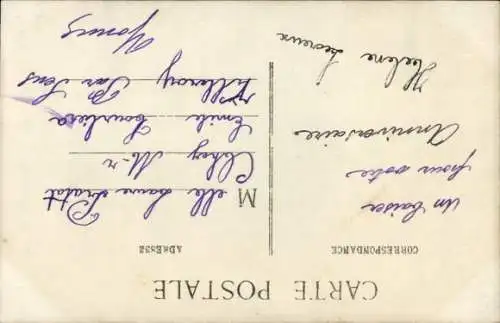 CARTE POSTALE
CORRESPONDANCE
ADRESSE
Un baiser
pour votre
Anniversaire
Helene
M elle Laure Pratat
Chez M-r
Emile
Villeroy Par Sens
Yonne